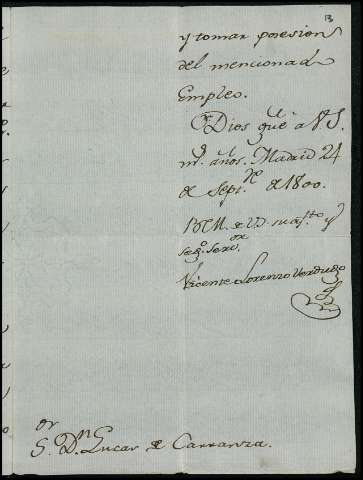 13
y tomar posesion
del mencionado
Empleo.
Dios gue. a V.S.
ms. años. Madrid 24
de Sepre. de 1800.
B.L.M. de V.S. su afto. y
segº. Servor.
Vicente Lorenzo Verdugo
Sor. Dn. Lucas de Carranza.